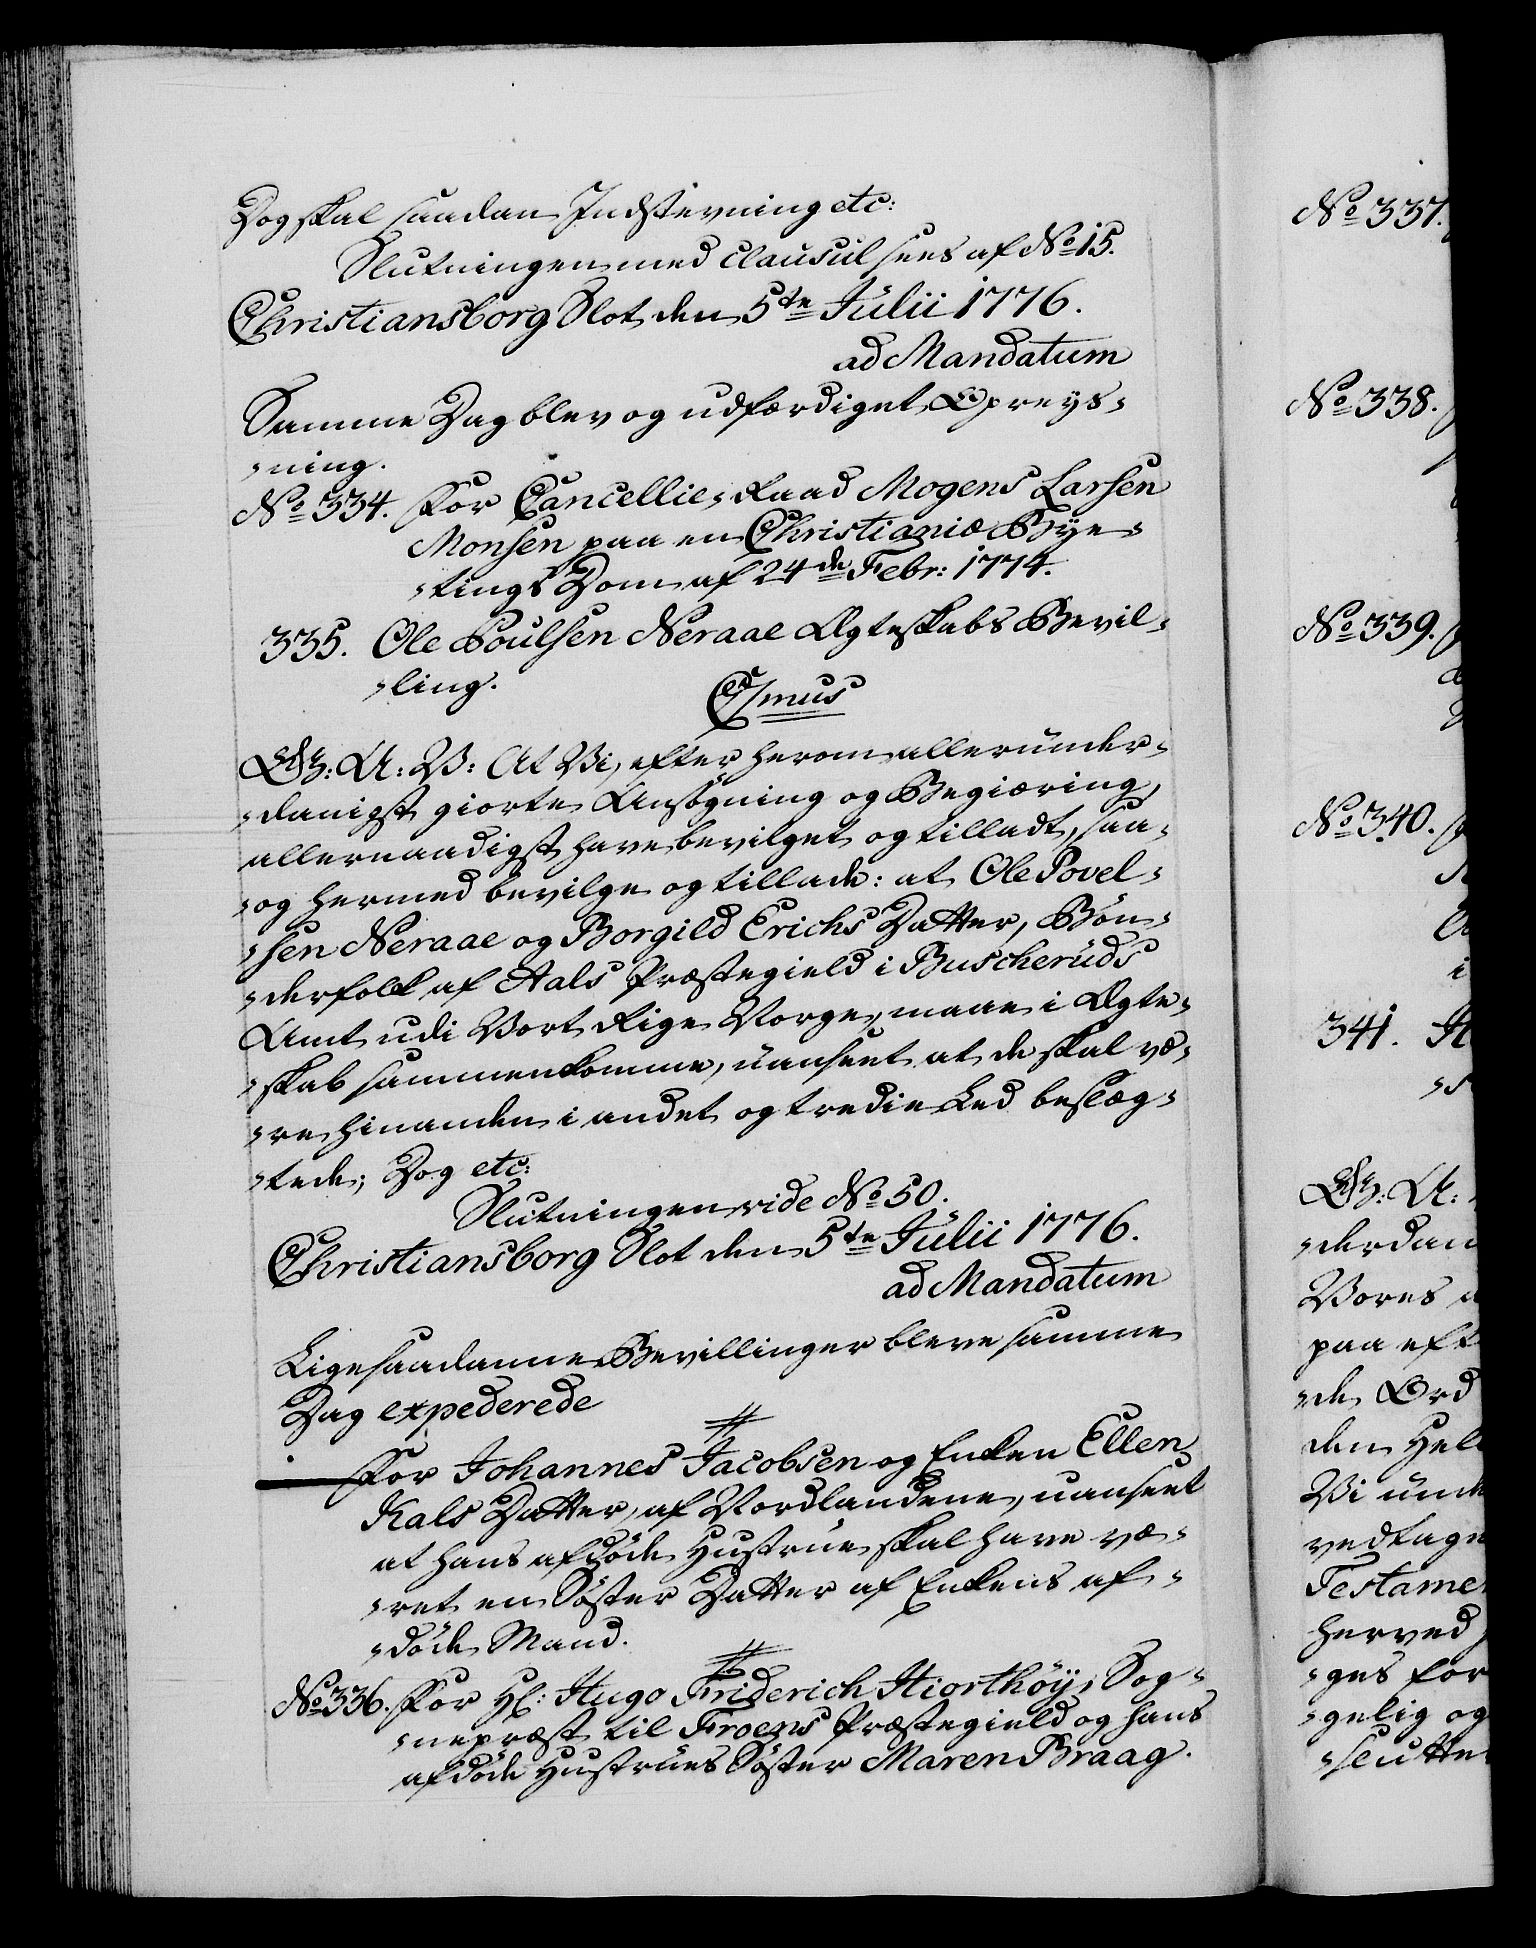 Dog skal saadan Indstevning etc:
Slutningen med clausul sees af No 15.
Christiansborg Slot den 5te Julii 1776.
ad Mandatum
Samme Dag blev og udfærdiget Opreys-
-ning.
No 334. For Cancellie-Raad Mogens Larsen
Monsen paa en Christianiæ Bye-
-tings Dom af 24de Febr: 1774.
335. Ole Poulsen Neraae Ægteskabs Bevil-
-ling.
C7mus
G: A: V: At Vi, efter herom allerunder-
-danigst giorte Ansøgning og Begiæring,
allernaadigst have bevilget og tilladt, saa-
-og hermed bevilge og tillade: at Ole Povel-
-sen Neraae og Borgild Erichs Datter, Bøn-
-derfolk af Aals Præstegield i Buscheruds
Amt udi Vort Rige Norge, maae i Ægte-
-skab sammenkomme, uanseet at de skal væ-
-re hinanden i andet og tredie Led beslæg-
-tede; Dog etc:
Slutningen vide No 50.
Christiansborg Slot den 5te Julii 1776.
ad Mandatum
Ligesaadanne Bevillinger bleve samme
Dag expederede
For Johannes Jacobsen og Enken Ellen
Kals Datter, af Nordlandene, uanseet
at hans afdøde Hustrue skal have væ-
-ret en Søster Datter af Enkens af-
-døde Mand.
No 336. For Hr: Hugo Friderich Hiorthøy, Sog-
-nepræst til Froens Præstegield og hans
afdøde Hustrues Søster Maren Braag.
No 337.
No 338.
No 339.
No 340.
341.
G: A:
-derdan
Vores
paa eft
-de Ord
den Hel
Vi unde
vedtage
Testame
herved
-ges for
-gelig og
-slutte